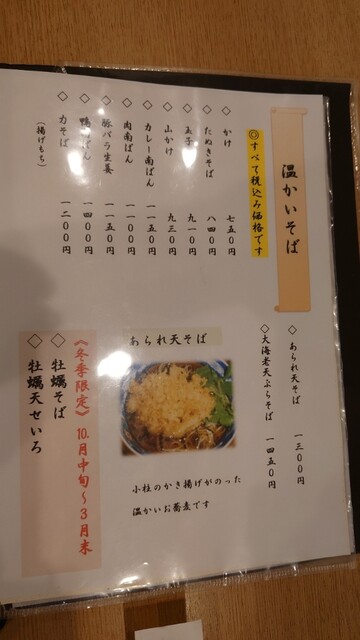 温かいそば
◎すべて税込み価格です
◇かけ 七五〇円
◇たぬきそば 八四〇円
◇玉子 九一〇円
◇山かけ 九三〇円
◇カレー南ばん 一一五〇円
◇肉南ばん 一一〇〇円
◇豚バラ生姜 一一五〇円
◇鴨南ばん 一四〇〇円
◇力そば 一二〇〇円
(揚げもち)
◇あられ天そば 一三〇〇円
◇大海老天ぷらそば 一四五〇円
あられ天そば
小柱のかき揚げがのった
温かいお蕎麦です
《冬季限定》10月中旬～3月末
◇牡蠣そば
◇牡蠣天せいろ